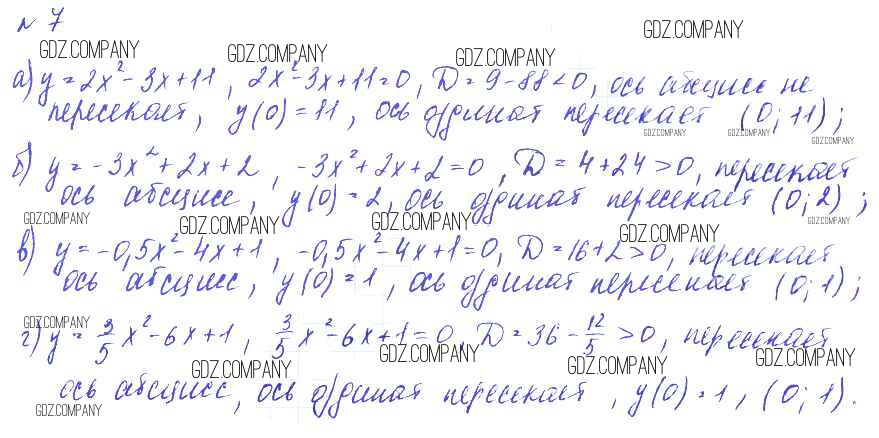 № 7
GDZ.COMPANY GDZ.COMPANY GDZ.COMPANY GDZ.COMPANY
а) y = 2x² - 3x + 11, 2x² - 3x + 11 = 0, D = 9 - 88 < 0, ось абсцисс не
пересекает, y(0) = 11, ось ординат пересекает (0; 11);
GDZ.COMPANY GDZ.COMPANY GDZ.COMPANY
б) y = -3x² + 2x + 2, -3x² + 2x + 2 = 0, D = 4 + 24 > 0, пересекает
ось абсцисс, y(0) = 2, ось ординат пересекает (0; 2);
GDZ.COMPANY GDZ.COMPANY GDZ.COMPANY GDZ.COMPANY GDZ.COMPANY
в) y = -0,5x² - 4x + 1, -0,5x² - 4x + 1 = 0, D = 16 + 2 > 0, пересекает
ось абсцисс, y(0) = 1, ось ординат пересекает (0; 1);
GDZ.COMPANY
г) y = 3/5 x² - 6x + 1, 3/5 x² - 6x + 1 = 0, D = 36 - 12/5 > 0, пересекает
GDZ.COMPANY GDZ.COMPANY GDZ.COMPANY GDZ.COMPANY
ось абсцисс, ось ординат пересекает, y(0) = 1, (0; 1).
GDZ.COMPANY